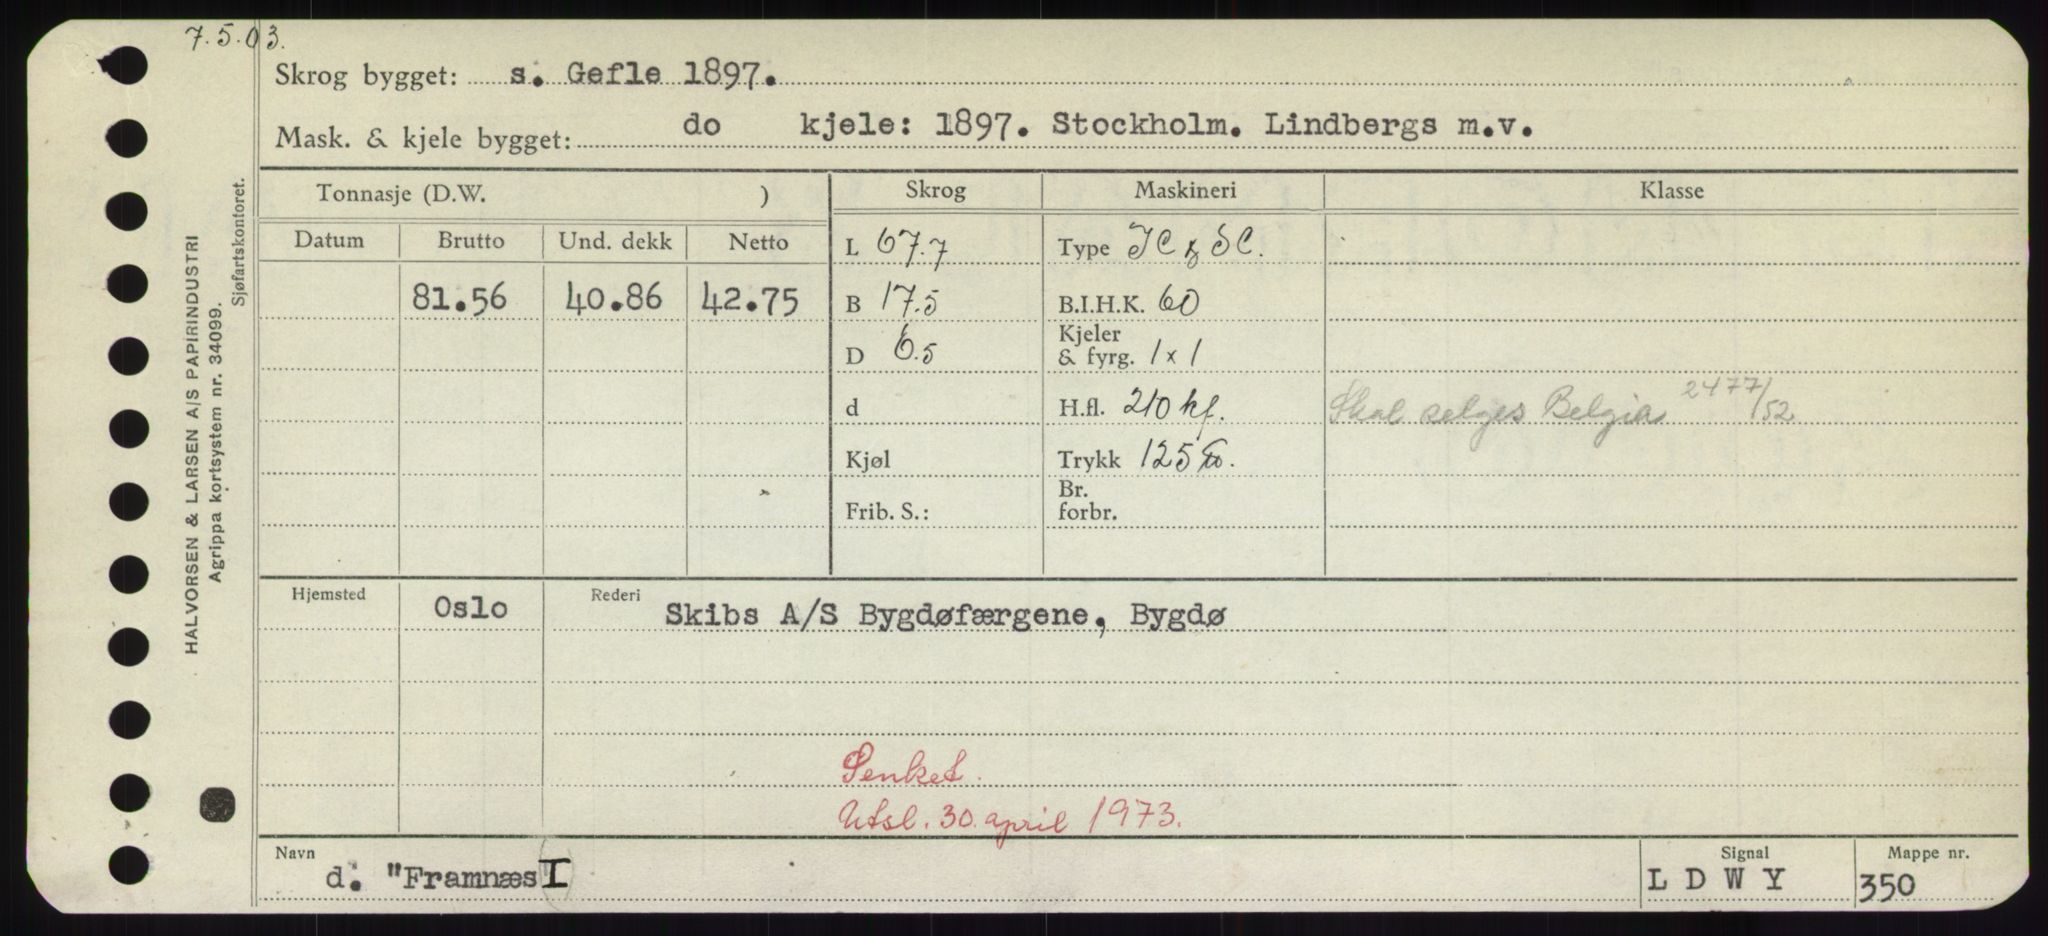 7.5.03.
Skrog bygget: s. Gefle 1897.
Mask. & kjele bygget: do kjele: 1897. Stockholm. Lindbergs m.v.
HALVORSEN & LARSEN A/S PAPIRINDUSTRI
Agrippa kortsystem nr. 34099.
Sjøfartskontoret.
Tonnasje (D.W. ) Skrog Maskineri Klasse
Datum Brutto Und. dekk Netto L 67.7 Type IC & SC.
81.56 40.86 42.75 B 17.5 B.I.H.K. 60
D 6.5 Kjeler & fyrg. 1x1
d H.fl. 210 kf. Skal selges Belgia 2477/52
Kjøl Trykk 125
Frib. S.: Br. forbr.
Hjemsted Oslo Rederi Skibs A/S Bygdøfærgene, Bygdø
Senket.
Utsl. 30. april 1973.
Navn Signal Mappe nr.
d. "Framnæs I L D W Y 350